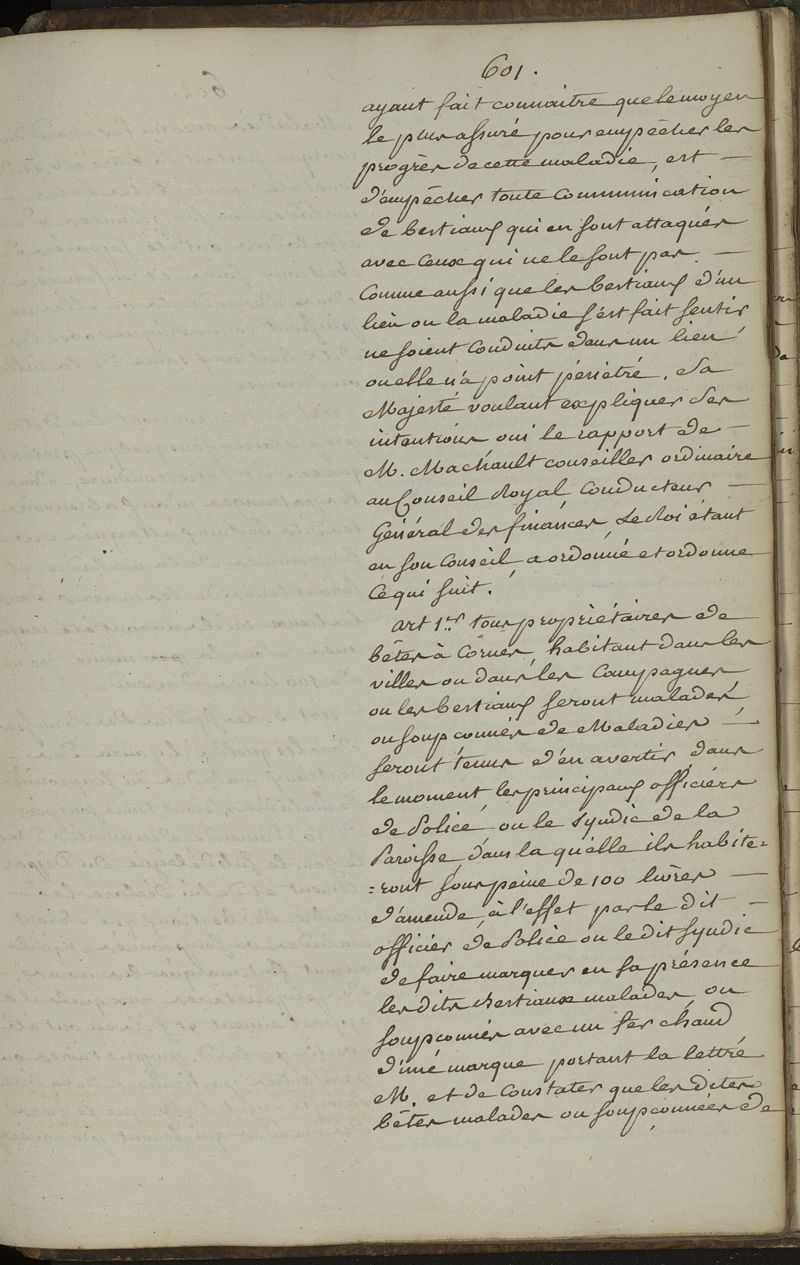 601.
ayant fait connaitre que le moyen
le plus assuré pour empêcher les
progrès de cette maladie, est —
d'empêcher toute communication
de bestiaux qui en sont attaqués
avec ceux qui ne le sont pas. —
Comme aussi que les bestiaux d'un
lieu ou la maladie s'est fait sentir
ne soient conduits dans un lieu
ou elle n'a point pénétré, Sa
Majesté voulant expliquer ses
intentions oui le rapport de —
M. Machault conseiller ordinaire
au Conseil Royal Conducteur —
Général des finances, Le Roi étant
en son Conseil, a ordonné et ordonne
ce qui suit.
art 1er tous propriétaires de
bêtes à Cornes, habitant dans les
villes ou dans les Campagnes
ou les bestiaux seront malades
ou soupçonnés de Maladies —
seront tenus d'en avertir, dans
le moment, les principaux officiers
de Police, ou le Syndic de la
Paroisse, dans la quélle ils habite=
=ront sous peine de 100 livres —
d'amende, à l'effet par le dit —
officier de Police ou le dit Syndic
de faire marquer en sa présence
les dits Bestiaux malades, ou
soupçonnés avec un fer chaud
d'une marque portant la lettre
M. et de Constater que les dites
bêtes malades ou soupçonnées de